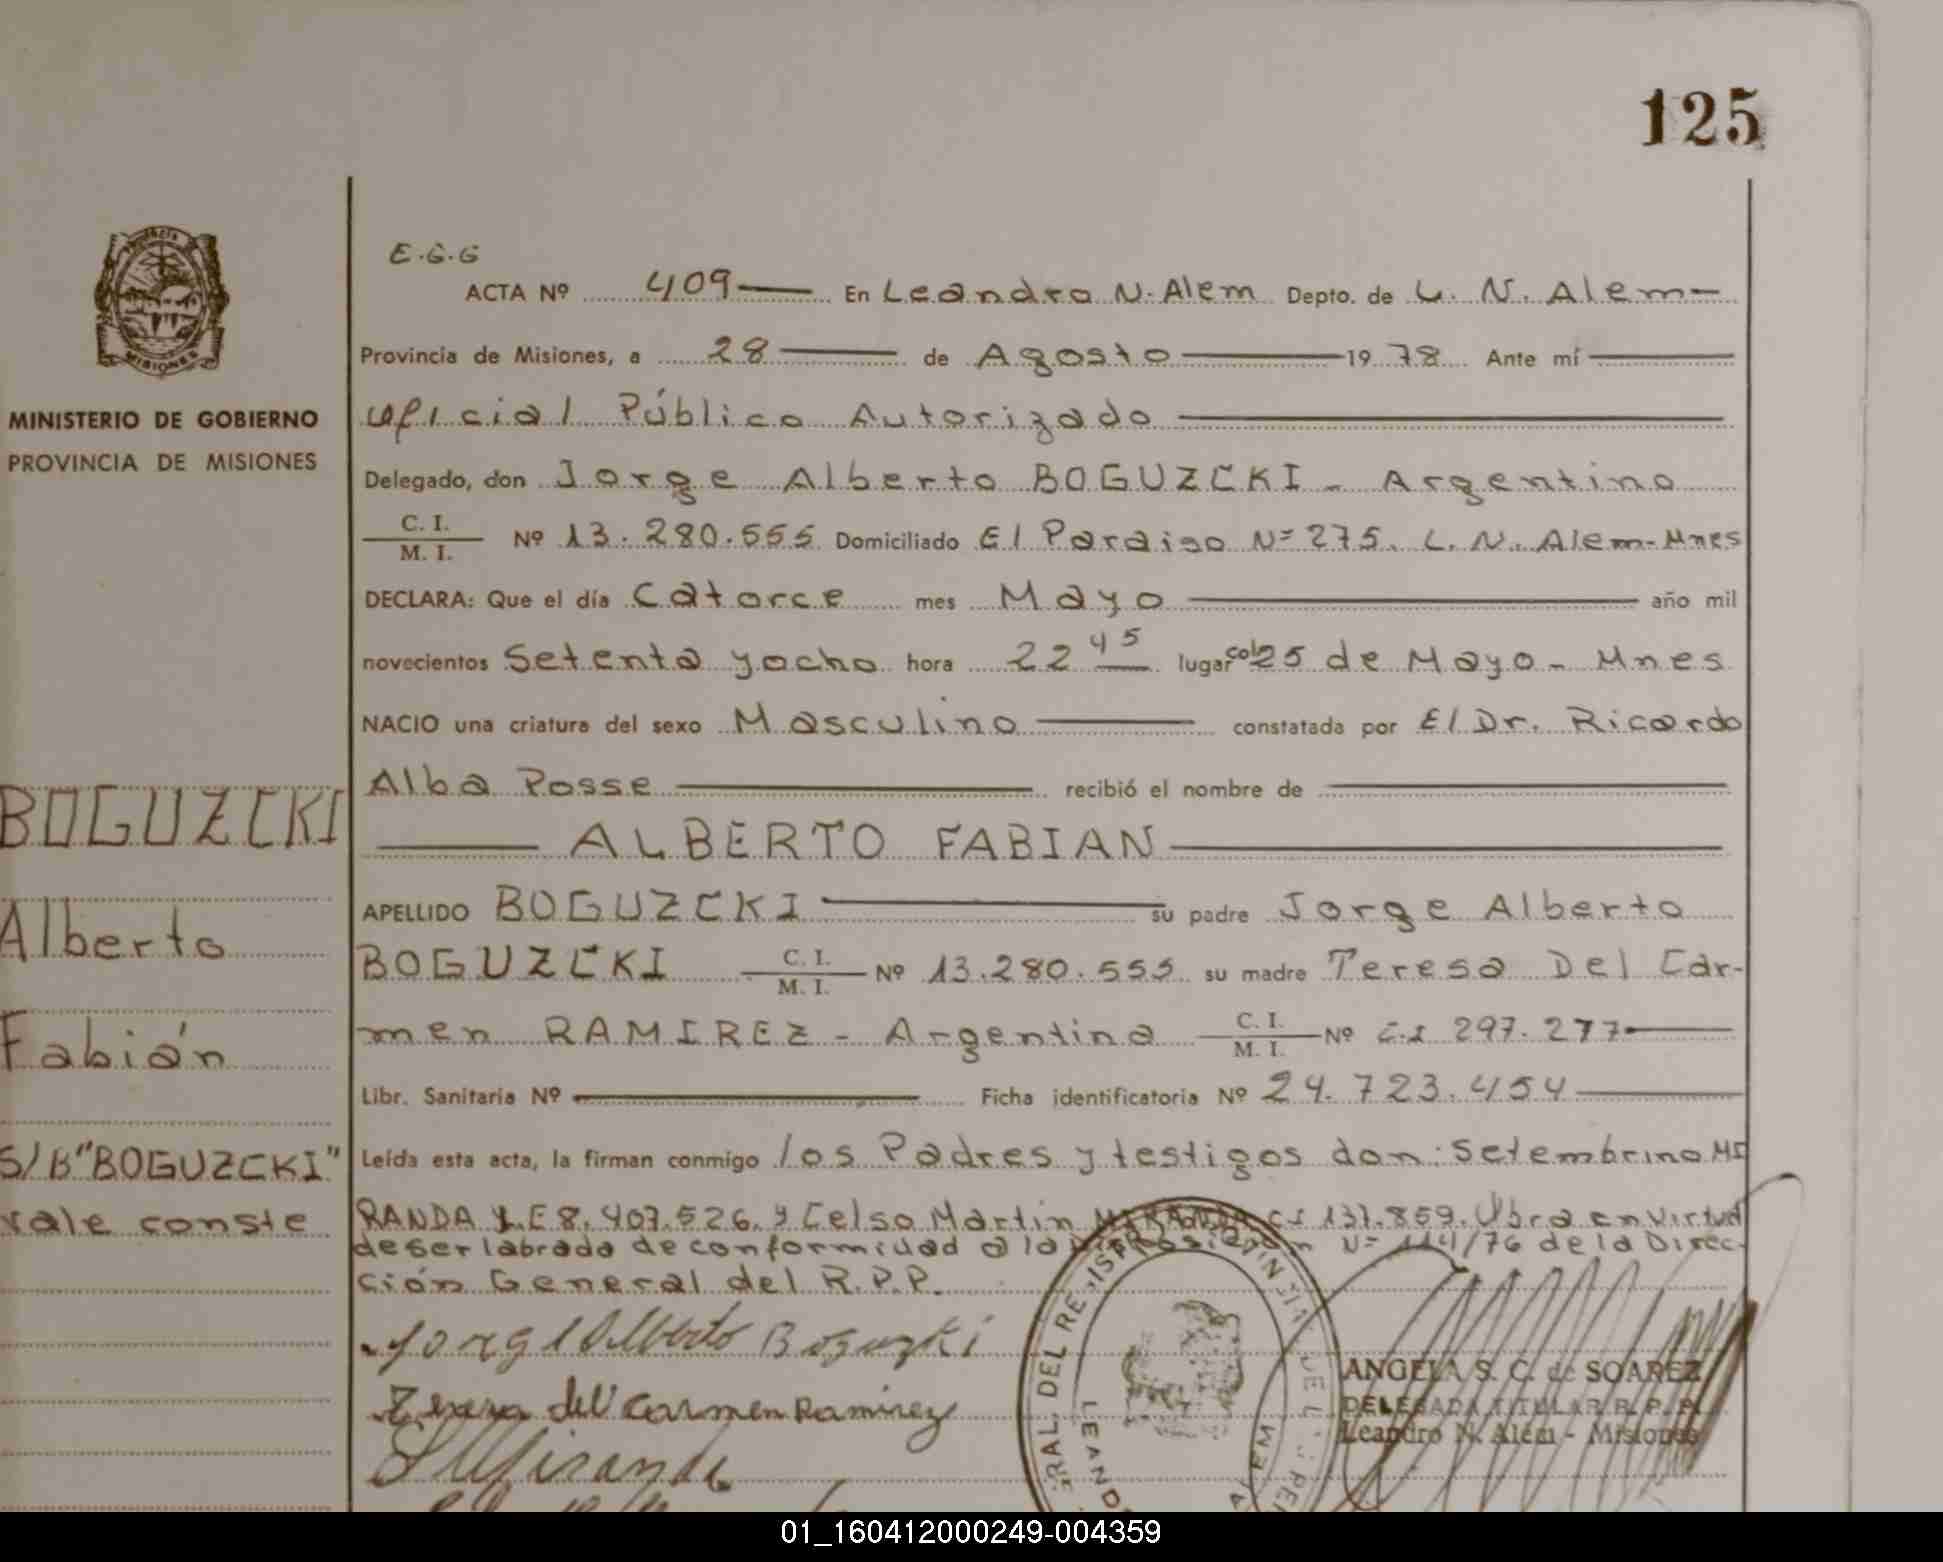 125
E.G.G
ACTA Nº 409 En Leandro N. Alem Depto. de L. N. Alem
Provincia de Misiones, a 28 de Agosto 1978 Ante mí
Oficial Público Autorizado
Delegado, don Jorge Alberto BOGUZCKI - Argentino
C. I.
M. I. Nº 13.280.555 Domiciliado El Paraiso Nº 275. L. N. Alem-Mnes
DECLARA: Que el día catorce mes Mayo año mil
novecientos Setenta yocho hora 22 45 lugar Col 25 de Mayo - Mnes
NACIO una criatura del sexo Masculino constatada por El Dr. Ricardo
Alba Posse recibió el nombre de
ALBERTO FABIAN
APELLIDO BOGUZCKI su padre Jorge Alberto
BOGUZCKI C. I.
M. I. Nº 13.280.555 su madre Teresa Del Car-
men RAMIREZ - Argentina C. I.
M. I. Nº C.I 297.277
Libr. Sanitaria Nº Ficha identificatoria Nº 24.723.454
Leída esta acta, la firman conmigo los Padres y testigos don: Setembrino MI
RANDA L.E 8.407.526. y Celso Martin MIRANDA C I 131.859. Obra en Virtud
de ser labrada de conformidad a la Disposición Nº 114/76 de la Direc-
ción General del R.P.P.
Jorge Alberto Boguzki
Teresa del Carmen Ramirez
S Miranda
ANGELA S. C. de SOAREZ
DELEGADA TITULAR R. P. P.
Leandro N. Alem - Misiones
Provincia
MISIONES
MINISTERIO DE GOBIERNO
PROVINCIA DE MISIONES
BOGUZCKI
Alberto
Fabián
S/B "BOGUZCKI"
vale conste
01_160412000249-004359